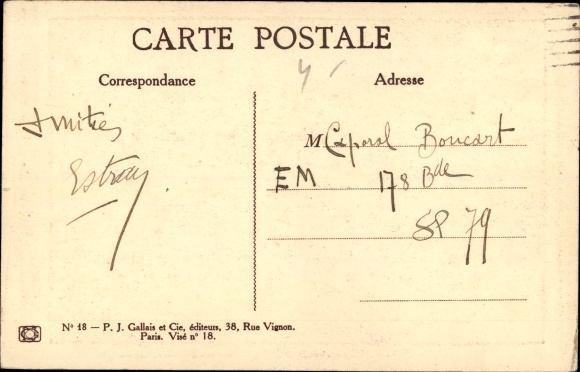 CARTE POSTALE
Correspondance
Adresse
Amitiés
M Caporal Boucart
EM 178 Bde
SP 79
N° 18 — P. J. Gallais et Cie, éditeurs, 38, Rue Vignon.
Paris. Visé n° 18.